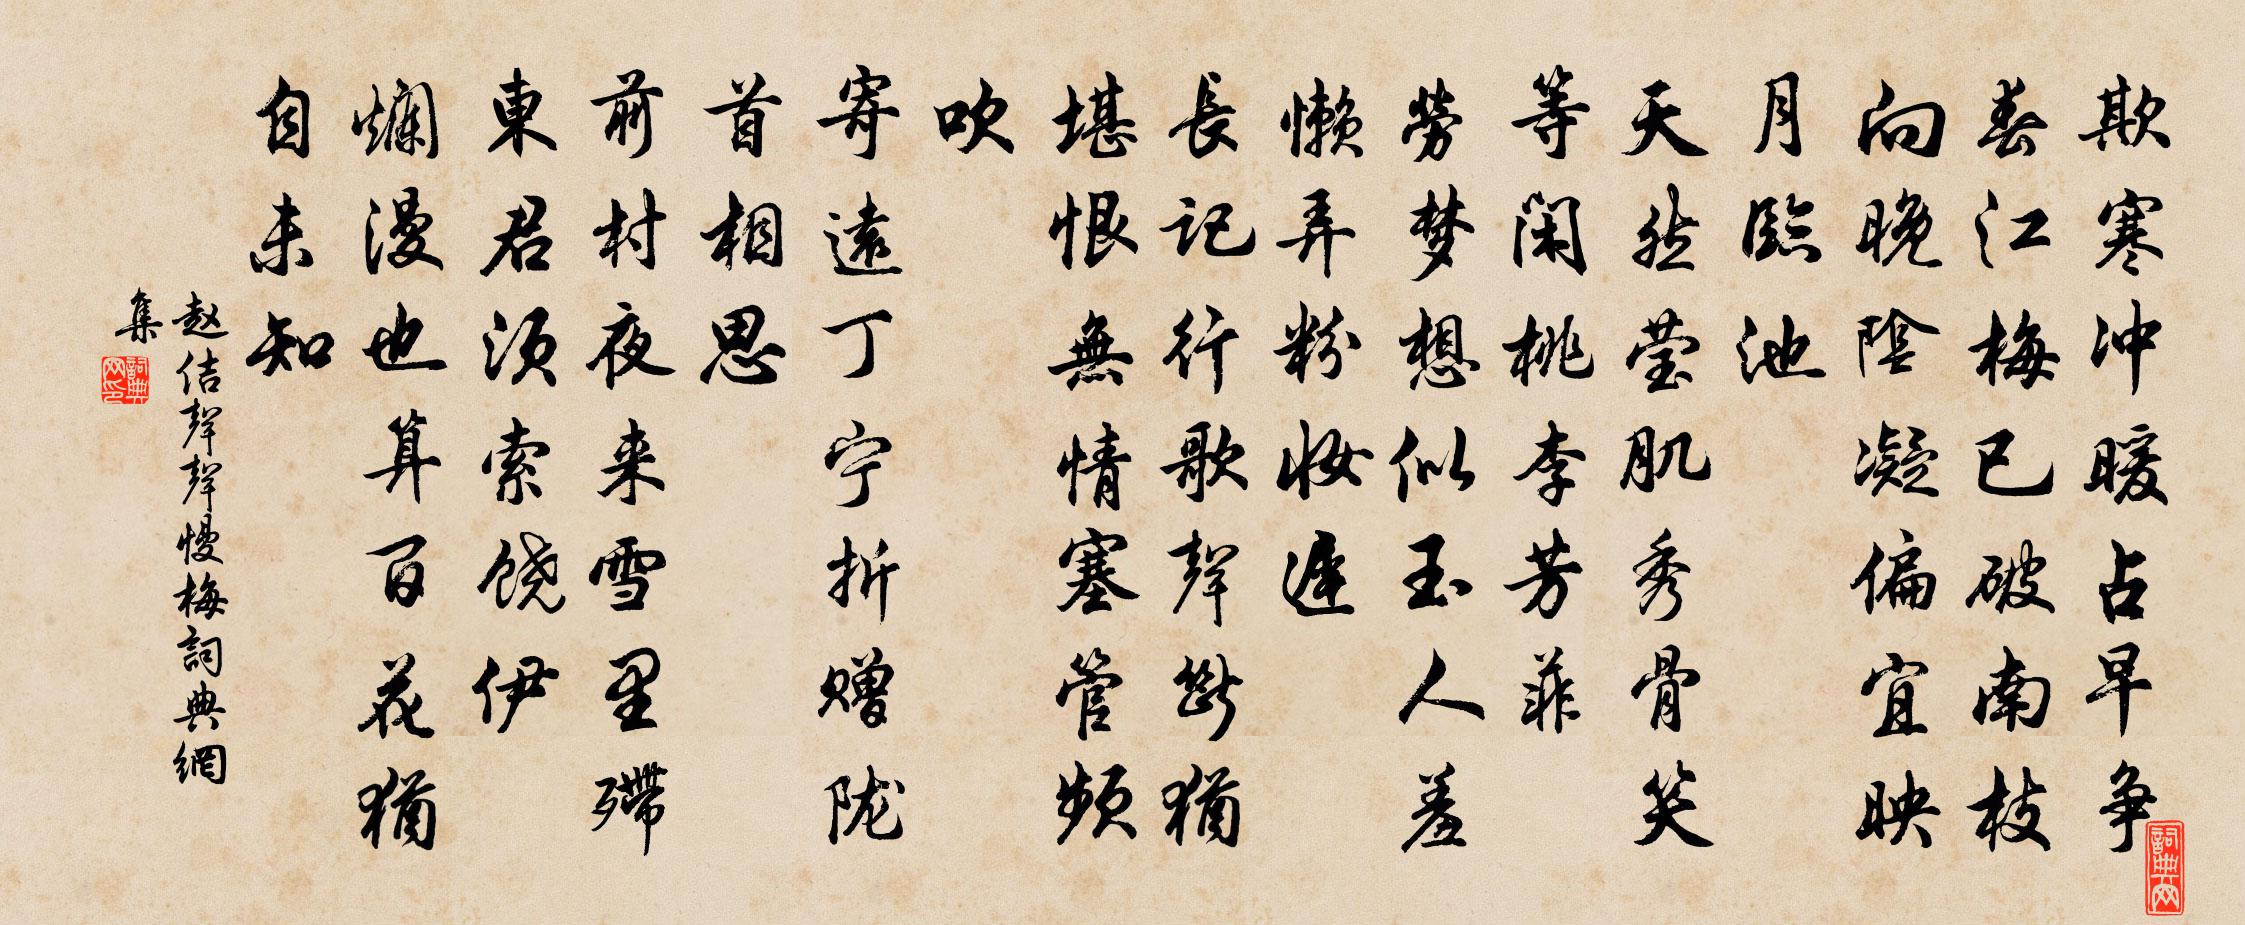 欺寒冲暖占早争
春江梅已破南枝
向晚陰凝偏宜映
月臨池
天然莹肌秀骨笑
等闲桃李芳菲
劳梦想似玉人羞
懒弄粉妆遲
長记行歌聲断犹
堪恨無情塞管频
吹
寄遠丁宁折赠陇
首相思
前村夜来雪里殢
東君须索饶伊
烂漫也算百花犹
自未知
赵佶聲聲慢梅詞典網
集
詞典网印
詞典网